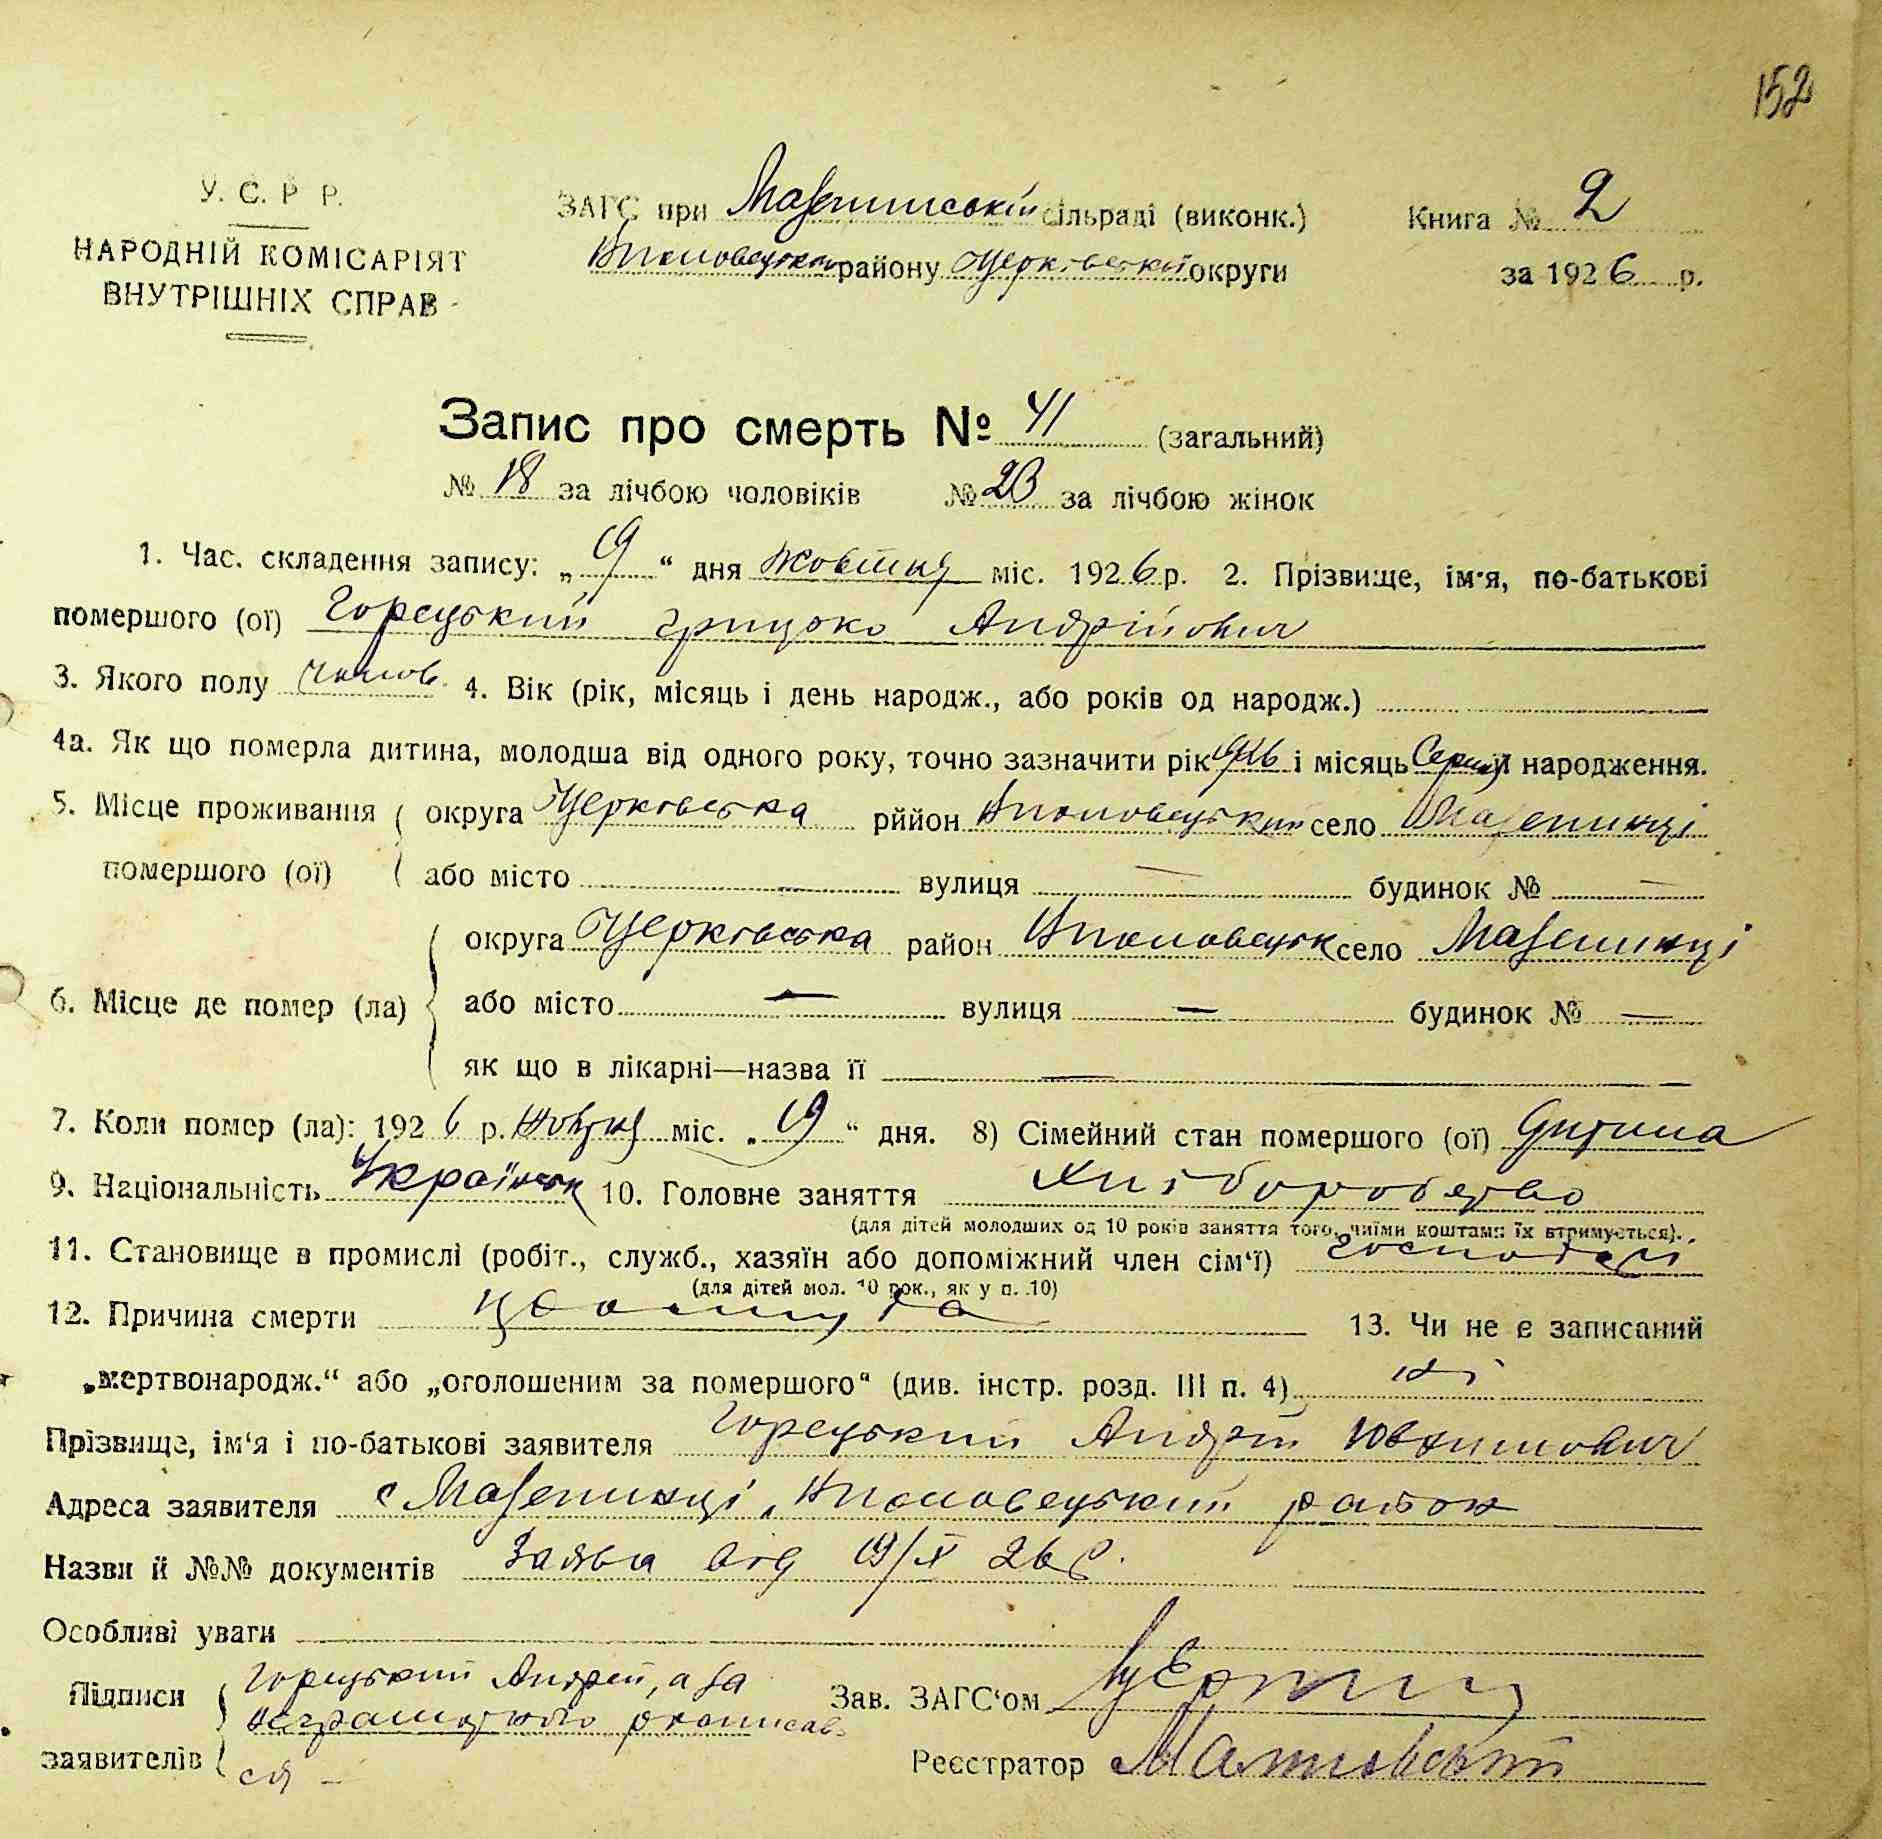 152
У. С. Р Р.
НАРОДНІЙ КОМІСАРІЯТ
ВНУТРІШНІХ СПРАВ
ЗАГС при Мазепинській сільраді (виконк.)
району Церківської округи
Книга № 2
за 1926 р.
Запис про смерть № 41 (загальний)
№ 18 за лічбою чоловіків № 23 за лічбою жінок
1. Час. складення запису: „ 19 “ дня жовтня міс. 1926 р. 2. Прізвище, ім'я, по-батькові
помершого (ої) Горецький Грицько Андрійович
3. Якого полу чолов. 4. Вік (рік, місяць і день народж., або років од народж.)
4а. Як що померла дитина, молодша від одного року, точно зазначити рік 1926 і місяць Серпня народження.
5. Місце проживання помершого (ої) округа Церківська рййон село Мазепинці
або місто — вулиця — будинок № —
6. Місце де помер (ла) округа Церківська район село Мазепинці
або місто — вулиця — будинок № —
як що в лікарні—назва її —
7. Коли помер (ла): 1926 р. Жовтня міс. „ 19 “ дня. 8) Сімейний стан помершого (ої) Дитина
9. Національність Українськ 10. Головне заняття Хліборобство
(для дітей молодших од 10 років заняття того, чиїми коштами їх втримується).
11. Становище в промислі (робіт., служб., хазяїн або допоміжний член сім'ї) господар
(для дітей мол. 10 рок., як у п. 10)
12. Причина смерти 13. Чи не є записаний
„мертвонародж.“ або „оголошеним за помершого“ (див. інстр. розд. III п. 4) ні
Прізвище, ім'я і по-батькові заявителя Горецький Андрій Юхимович
Адреса заявителя с Мазепинці, район
Назви й №№ документів Заява від 19/X 26 р.
Особливі уваги
Підписи заявителів Горецький Андрій, а за
неграмотного росписав
ся —
Зав. ЗАГС'ом
Реєстратор